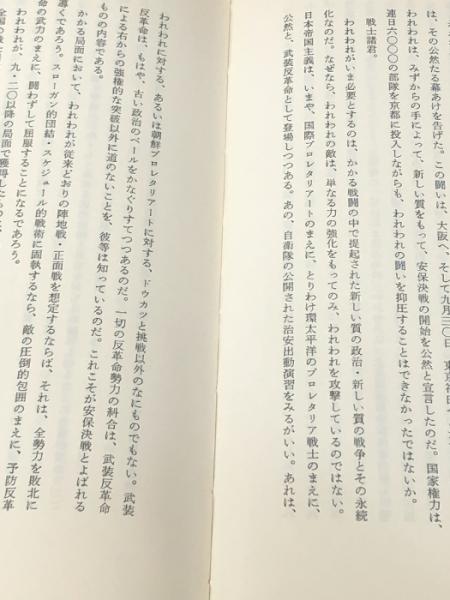 は、その公然たる幕あけを告げた。この闘いは、大阪へ、そして九月三〇日、東京神田
われわれは、みずからの手によって、新しい質をもって、安保決戦の開始を公然と宣言したのだ。国家権力は、
連日六〇〇〇の部隊を京都に投入しながらも、われわれの闘いを抑圧することはできなかったではないか。
戦士諸君。
われわれがいま必要とするのは、かかる戦闘の中で提起された新しい質の政治・新しい質の戦争とその永続
化なのだ。なぜなら、われわれの敵は、単なる力の強化をもってのみ、われわれを攻撃しているのではない。
日本帝国主義は、いまや、国際プロレタリアートのまえに、とりわけ環太平洋のプロレタリア戦士のまえに、
公然と、武装反革命として登場しつつある。あの、自衛隊の公開された治安出動演習をみるがいい。あれは、
われわれに対する、あるいは朝鮮プロレタリアートに対する、ドウカツと挑戦以外のなにものでもない。武装
反革命は、もはや、古い政治のベールをかなぐりすてつつあるのだ。一切の反革命勢力の糾合は、武装反革命
による右からの強権的な突破以外に道のないことを、彼等は知っているのだ。これこそが安保決戦とよばれる
ものの内容である。
かかる局面において、われわれが従来どおりの陣地戦・正面戦を想定するならば、それは、全勢力を敗北に
導くであろう。スローガン的団結・スケジュール的戦術に固執するなら、敵の圧倒的包囲のまえに、予防反革
命の武力のまえに、闘わずして屈服することになるであろう。
われわれが、九・二〇以降の局面で獲得したものは、